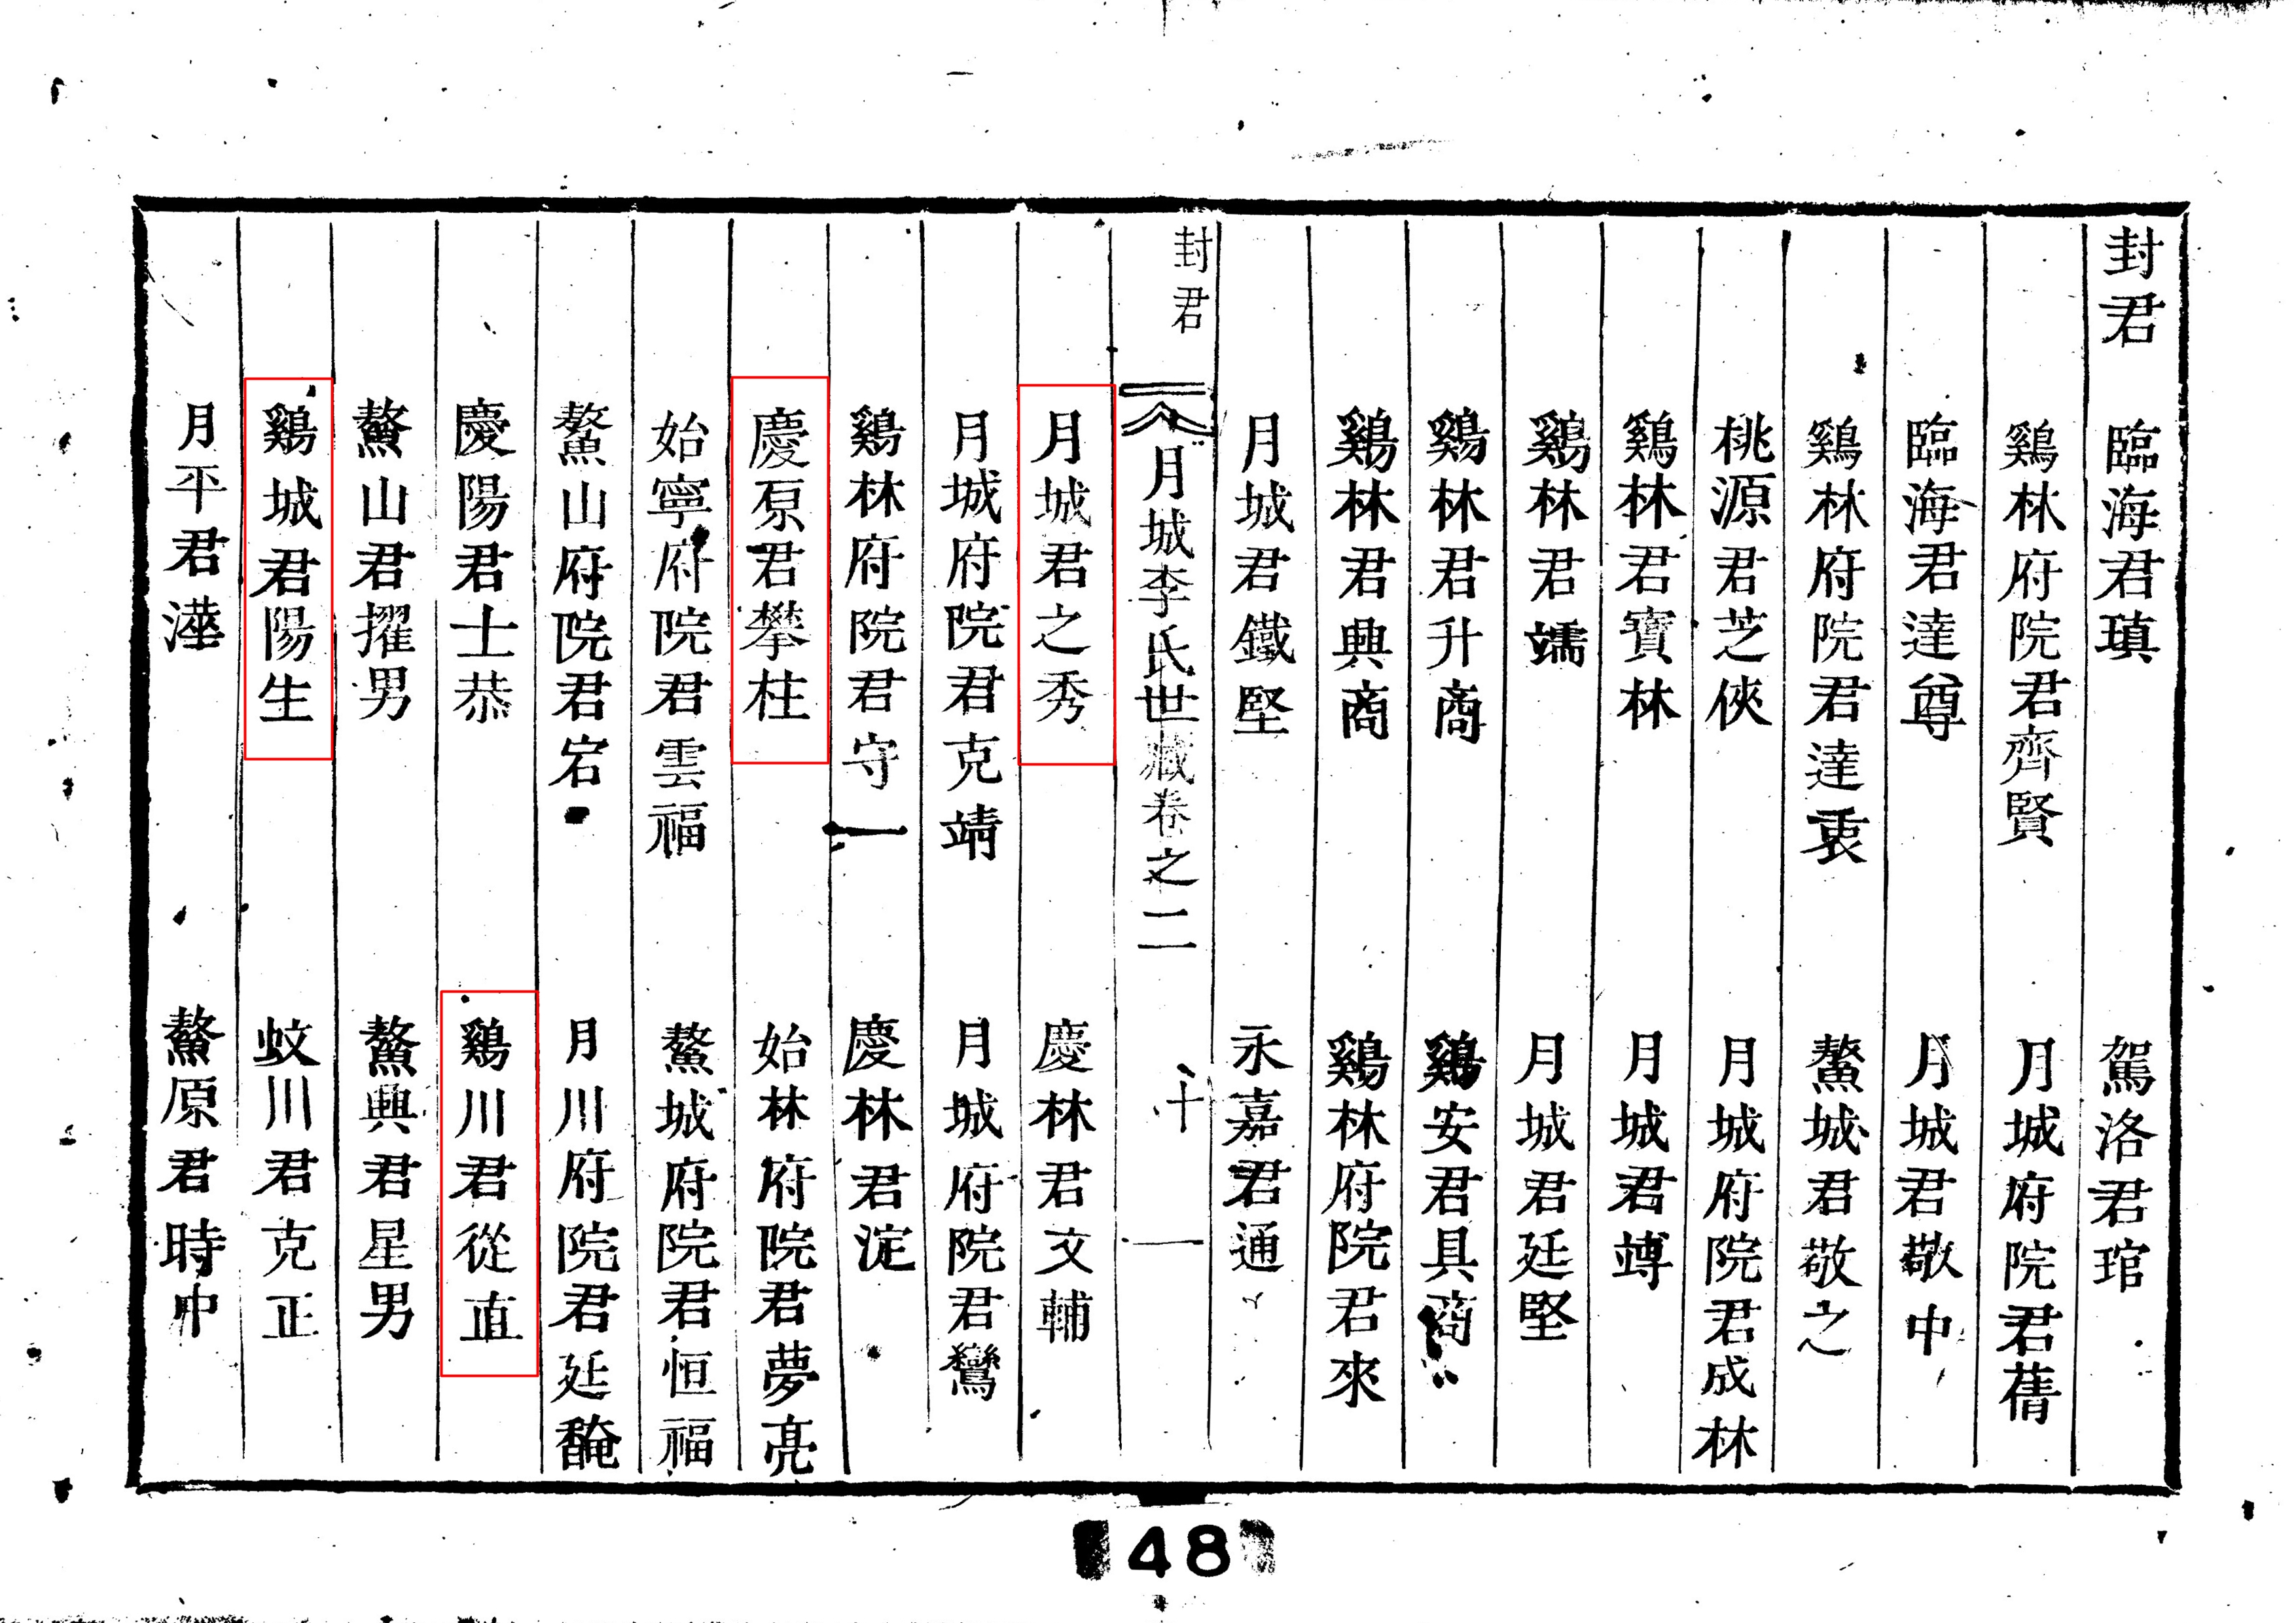 封君
臨海君瑱 駕洛君琯
鷄林府院君齊賢 月城府院君蒨
臨海君達尊 月城君敬中
鷄林府院君達衷 鰲城君敬之
桃源君芝俠 月城府院君成林
鷄林君寶林 月城君竱
鷄林君𥪥 月城君廷堅
鷄林君升商 鷄安君具商
鷄林君興商 鷄林府院君來
月城君鐵堅 永嘉君通
封君 月城李氏世蔵卷之二 十一
月城君之秀 慶林君文輔
月城府院君克靖 月城府院君鸞
鷄林府院君守一 慶林君淀
慶原君攀柱 始林府院君夢亮
始寧府院君雲福 鰲城府院君恒福
鰲山府院君宕 月川府院君廷馣
慶陽君士恭 鷄川君從直
鰲山君擢男 鰲興君星男
鷄城君陽生 蚊川君克正
月平君 鰲原君時中
48